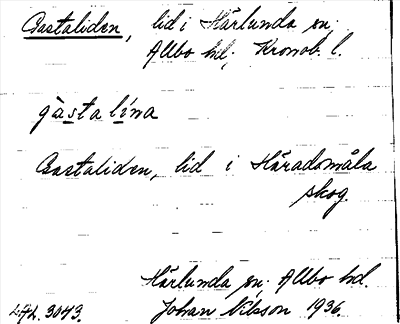 Gastaliden, lid i Härlunda sn.
Allbo hd; Kronob. l.
gàsta lína
Gastaliden, lid i Häradsmåla
skog.
Härlunda sn. Allbo hd.
LAL. 3043. Johan Nilsson 1936.